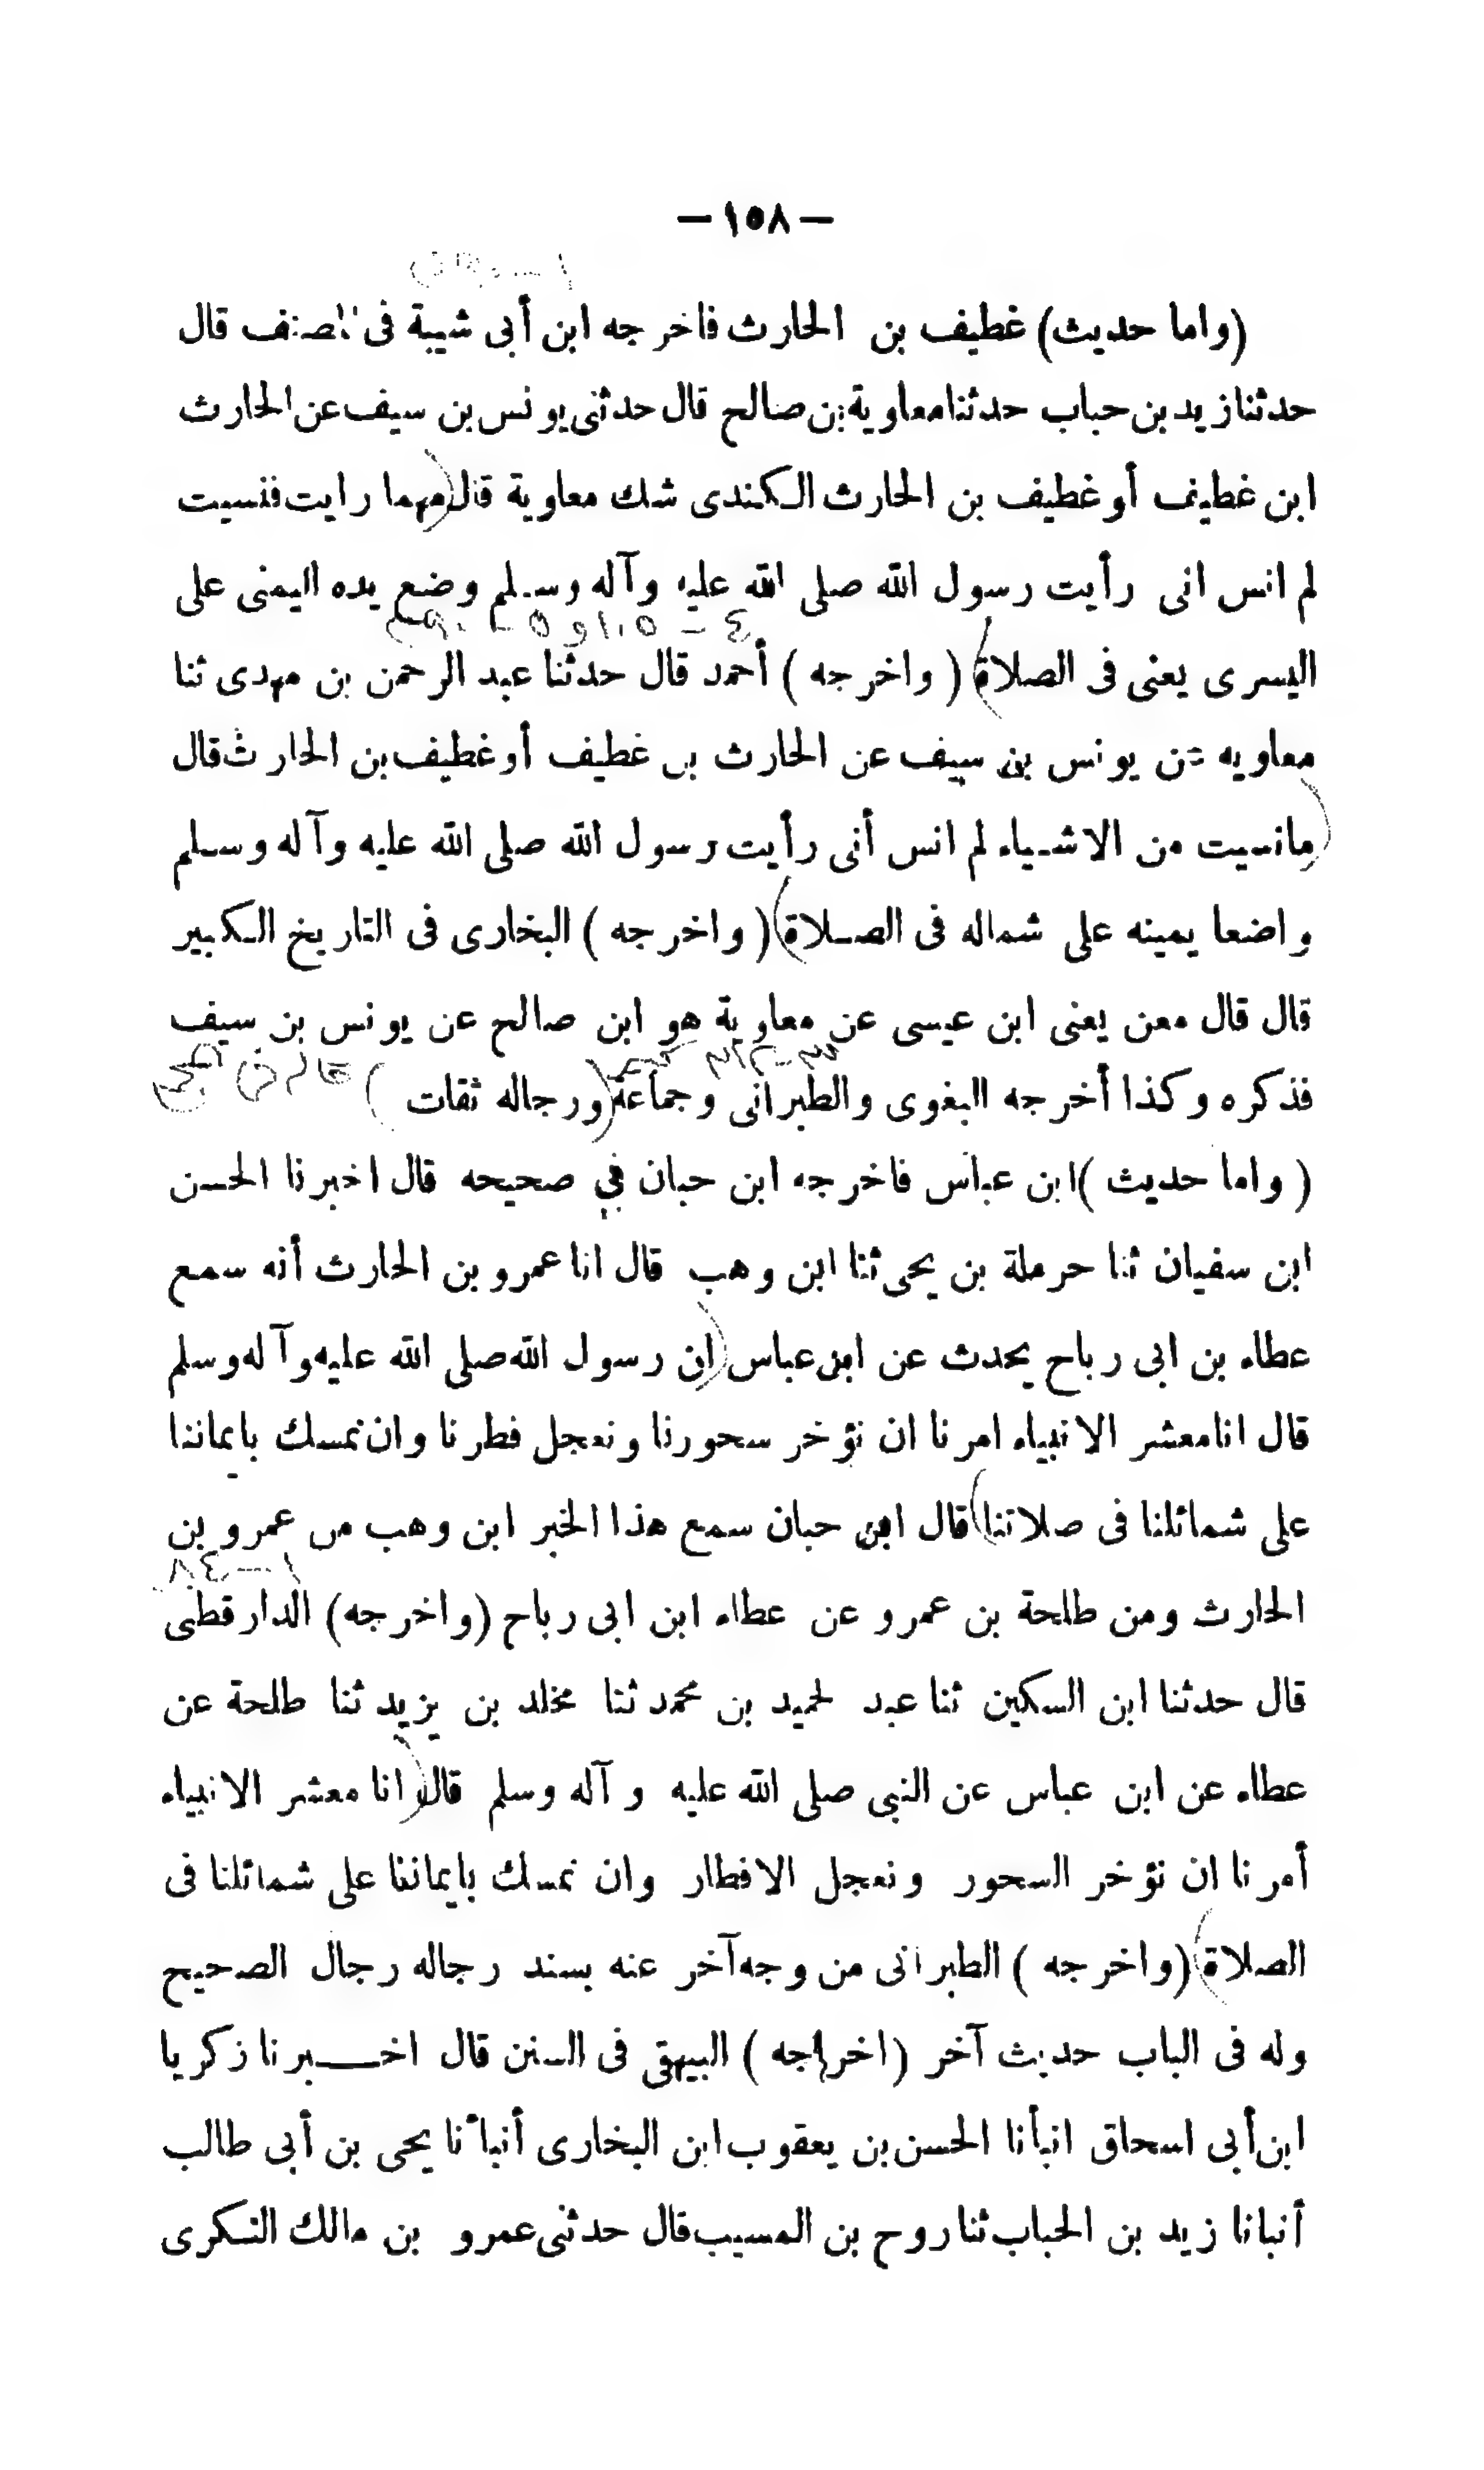 — ١٥٨ —
(واما حديث) غطيف بن الحارث فاخرجه ابن أبى شيبة فى المصنف قال
حدثنا زيد بن حباب حدثنا معاوية بن صالح قال حدثنى يونس بن سيف عن الحارث
ابن غطيف أو غطيف بن الحارث الكندى شك معاوية قال مهما رايت فنسيت
لم انس انى رأيت رسول الله صلى الله عليه وآله وسلم وضع يده اليمنى على
٤ - ١٠٥ و ٥ - ٢٩٠
اليسرى يعنى فى الصلاة (واخرجه) أحمد قال حدثنا عبد الرحمن بن مهدى ثنا
معاويه عن يونس بن سيف عن الحارث بن غطيف أو غطيف بن الحارث قال
مانسيت من الاشياء لم انس أنى رأيت رسول الله صلى الله عليه وآله وسلم
واضعا يمينه على شماله فى الصلاة (واخرجه) البخارى فى التاريخ الكبير
قال قال معن يعنى ابن عيسى عن معاوية هو ابن صالح عن يونس بن سيف
فذكره وكذا أخرجه البغوى والطبرانى وجماعة (ورجاله ثقات)
(واما حديث) ابن عباس فاخرجه ابن حبان في صحيحه قال اخبرنا الحسن
ابن سفيان ثنا حرملة بن يحى ثنا ابن وهب قال انا عمرو بن الحارث أنه سمع
عطاء بن ابى رباح يحدث عن ابن عباس (ان رسول الله صلى الله عليه وآله وسلم
قال انا معشر الانبياء امرنا ان نؤخر سحورنا ونعجل فطرنا وان نمسك بايماننا
على شمائلنا فى صلاتنا) قال ابن حبان سمع هذا الخبر ابن وهب من عمرو بن
الحارث ومن طلحة بن عمرو عن عطاء ابن ابى رباح (واخرجه) الدارقطنى
قال حدثنا ابن السكين ثنا عبد لحميد بن محمد ثنا مخلد بن يزيد ثنا طلحة عن
عطاء عن ابن عباس عن النبى صلى الله عليه وآله وسلم قال (انا معشر الانبياء
أمرنا ان نؤخر السحور ونعجل الافطار وان نمسك بايماننا على شمائلنا فى
الصلاة) (واخرجه) الطبرانى من وجه آخر عنه بسند رجاله رجال الصحيح
وله فى الباب حديث آخر (اخراجه) البيهقى فى السنن قال اخبرنا زكريا
ابن أبى اسحاق انبأنا الحسن بن يعقوب ابن البخارى أنبأنا يحى بن أبى طالب
أنبانا زيد بن الحباب ثنا روح بن المسيب قال حدثنى عمرو بن مالك النكرى